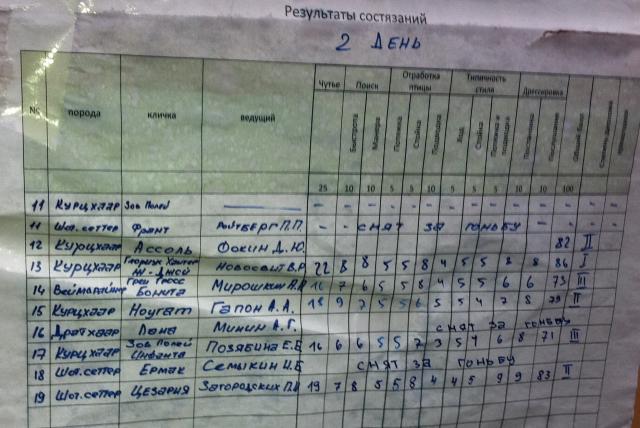 Результаты состязаний
2 День
№ порода кличка ведущий Чутье Поиск Отработка птицы Типичность стиля Дрессировка
Быстрота Манера Потяжка Стойка Подводка Ход Стойка Потяжка и подводка Постановка Послушание Общий балл
25 10 10 5 5 5 5 5 5 10 10 100
11 Курцхаар Зов Полей
11 Шот. сеттер Франт П.П. - - снят за гоньбу - - -
12 Курцхаар Ассоль Фокин Д.Ю. 82 II
13 Курцхаар Новосвит В.Р 22 8 8 5 5 8 4 5 5 8 8 86 I
14 Грей Гросс Бонита Мирошкин 7 6 5 5 8 4 5 5 6 6 73 III
15 Курцхаар Ноугат Гапон А.А. 18 9 7 5 5 6 5 5 4 7 8 79 II
16 Дратхаар Лана Минин А.Г. снят за гоньбу
17 Курцхаар Зов Полей Инфанта Позябина Е.Б 16 6 6 5 5 7 3 5 4 6 8 71 III
18 Шот. сеттер Ермак Семыкин И.Б снят за гоньбу
19 Шот. сеттер Цезария Загородских 19 7 8 5 5 8 4 4 5 9 9 83 II